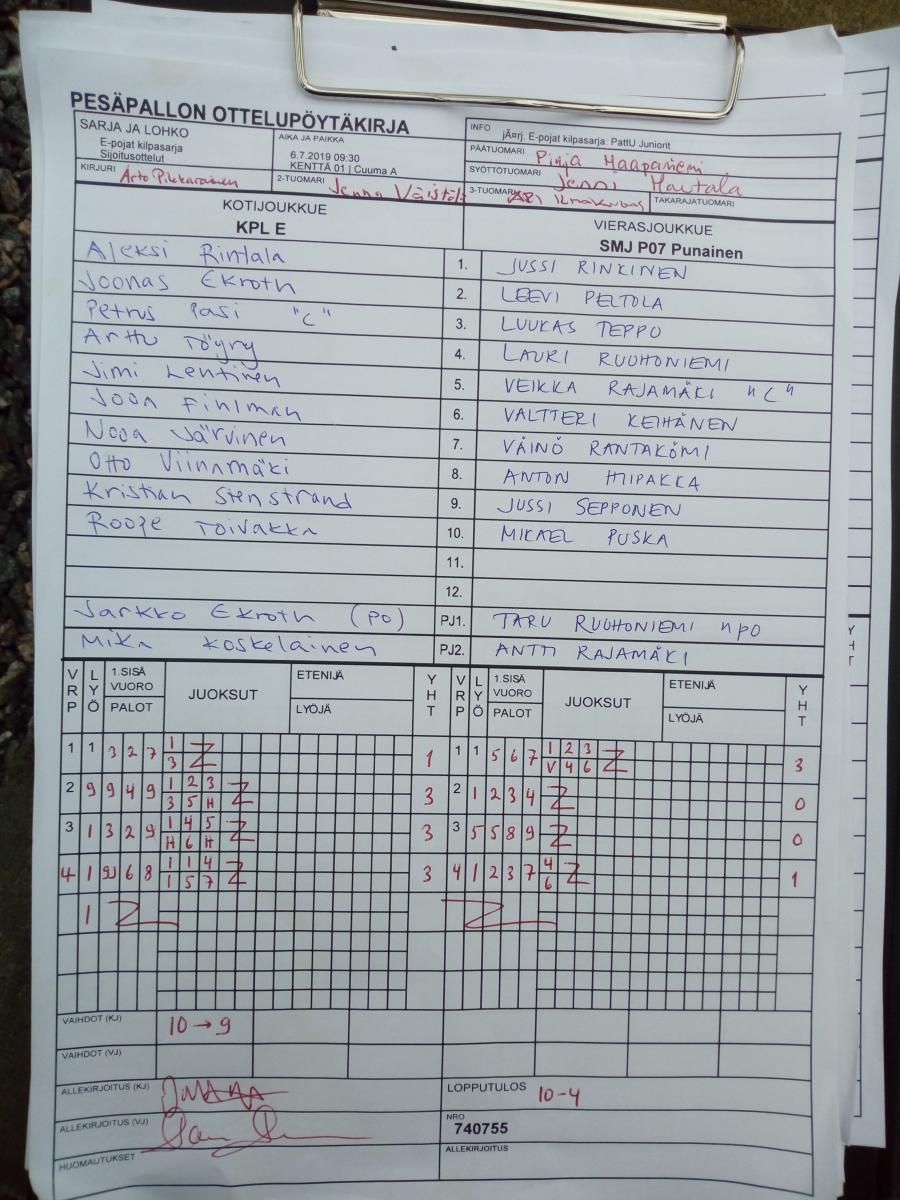 PESÄPALLON OTTELUPÖYTÄKIRJA
SARJA JA LOHKO
E-pojat kilpasarja
Sijoitusottelut
AIKA JA PAIKKA
6.7.2019 09:30
KENTTÄ 01 | Cuuma A
INFO
jÃ¤rj. E-pojat kilpasarja: PattU Juniorit
PÄÄTUOMARI Pinja Haapaniemi
SYÖTTÖTUOMARI Jenni Hautala
KIRJURI Arto Pikkarainen
2-TUOMARI Jenna Väistöl
3-TUOMARI
TAKARAJATUOMARI
KOTIJOUKKUE
KPL E
VIERASJOUKKUE
SMJ P07 Punainen
Aleksi Rintala 1. JUSSI RINKINEN
Joonas Ekroth 2. LEEVI PELTOLA
Petrus Pasi "C" 3. LUUKAS TEPPO
Arttu Töyry 4. LAURI RUOHONIEMI
Jimi Lehtinen 5. VEIKKA RAJAMÄKI "C"
Joon Finlman 6. VALTTERI KEIHÄNEN
Nooa Järvinen 7. VÄINÖ RANTAKÖMI
Otto Viinamäki 8. ANTON HIIPAKKA
Kristian Stenstrand 9. JUSSI SEPPONEN
Roope Toivakka 10. MIKAEL PUSKA
11.
12.
Jarkko Ekroth (PO) PJ1. TARU RUOHONIEMI "PO
Mika Koskelainen PJ2. ANTTI RAJAMÄKI
VRP LYÖ 1.SISÄ VUORO PALOT JUOKSUT ETENIJÄ LYÖJÄ YHT VRP LYÖ 1.SISÄ VUORO PALOT JUOKSUT ETENIJÄ LYÖJÄ YHT
1 1 3 2 7 1 Z 1 1 1 5 6 7 1 2 3 Z 3
3 V 4 6
2 9 9 4 9 1 2 3 Z 3 2 1 2 3 4 Z 0
3 5 H
3 1 3 2 9 1 4 5 Z 3 3 5 5 8 9 Z 0
H 6 H
4 1 6 8 1 1 4 Z 3 4 1 2 3 7 4 Z 1
1 5 7 6
1 Z Z
VAIHDOT (KJ) 10→9
VAIHDOT (VJ)
ALLEKIRJOITUS (KJ)
LOPPUTULOS 10-4
ALLEKIRJOITUS (VJ)
NRO
740755
HUOMAUTUKSET
ALLEKIRJOITUS